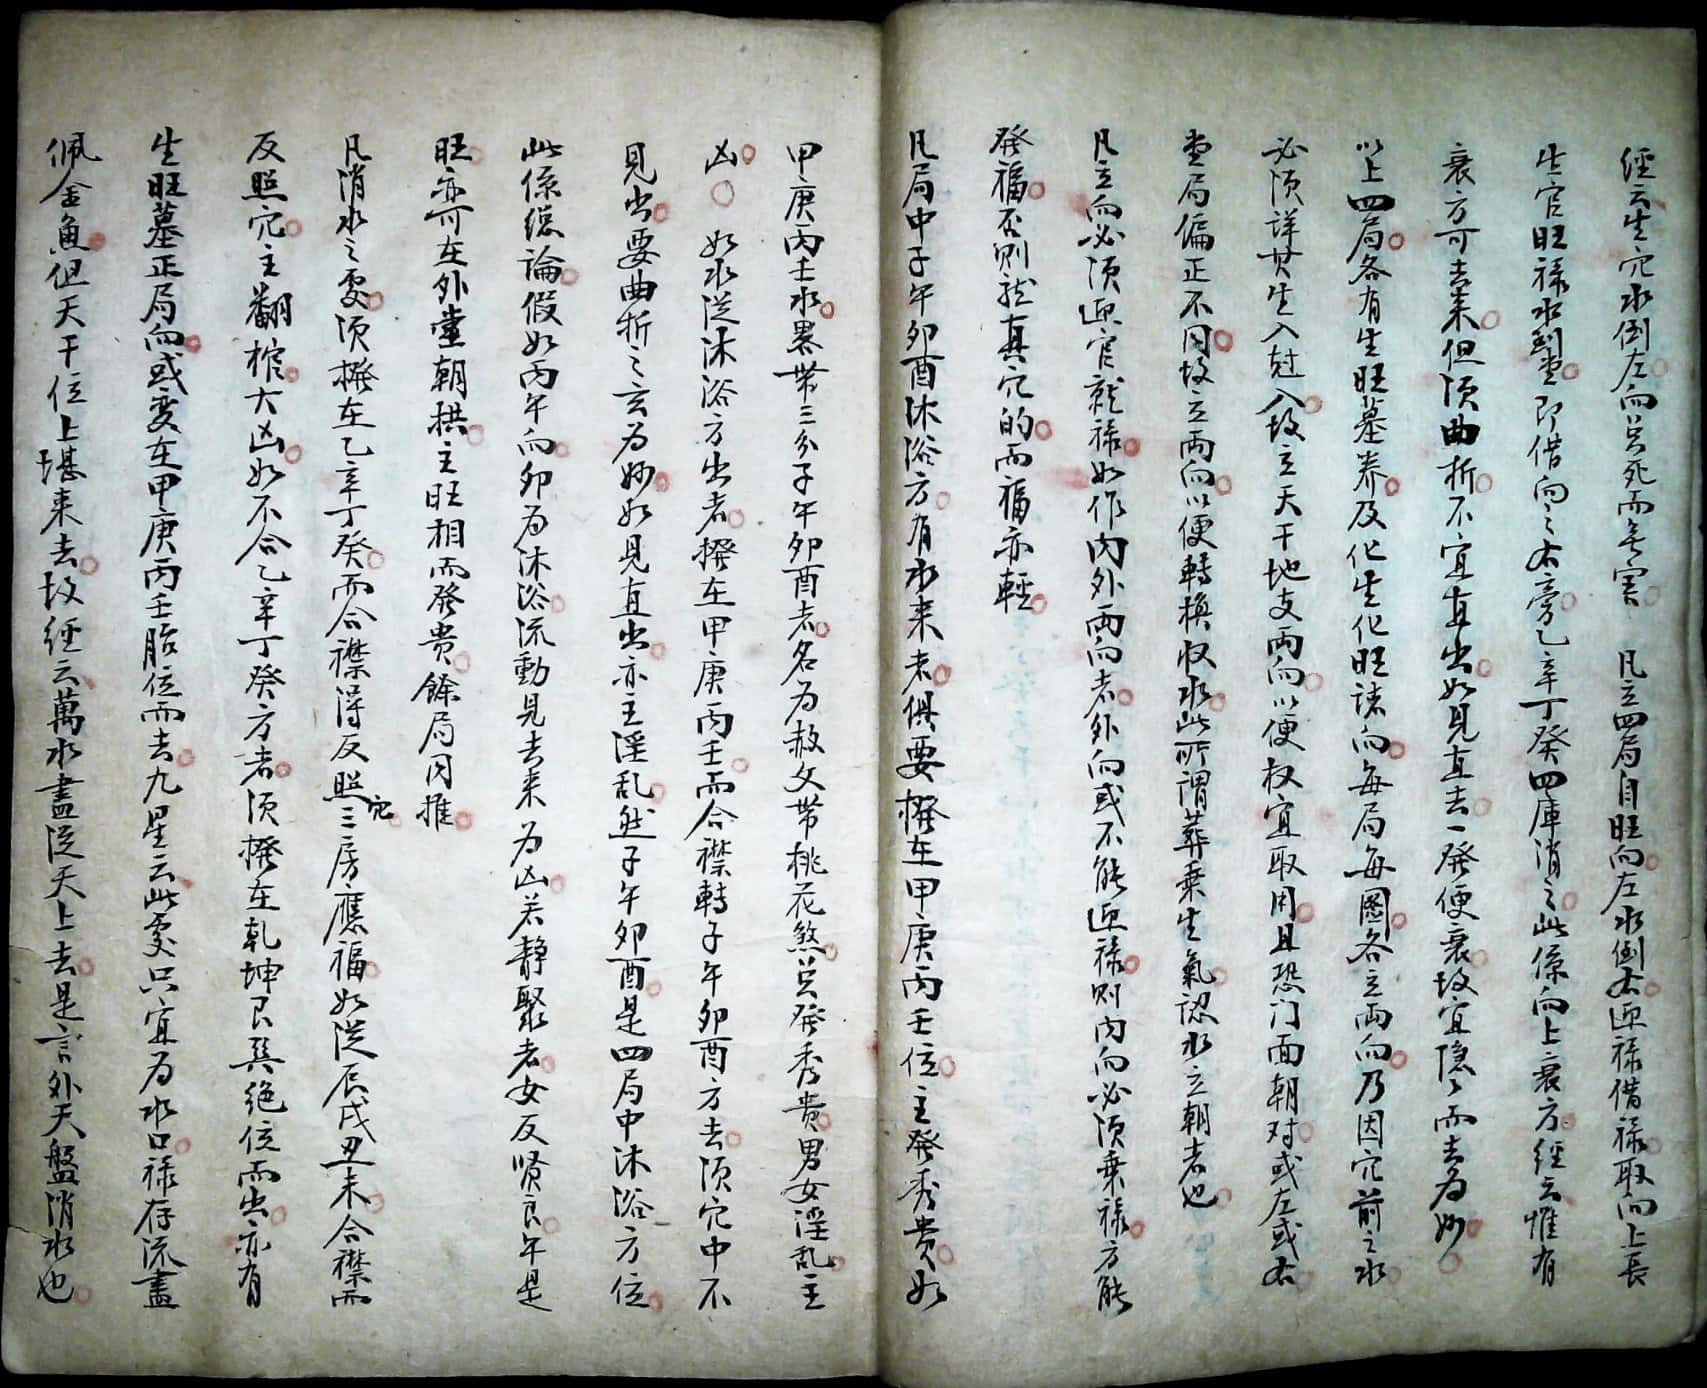 經云生穴水倒左向只死而無害　凡立四局自旺向左水倒右迎祿借祿取向上長
生官旺祿水到堂即借向之右旁乙辛丁癸四庫消之此係向上衰方經云惟有
衰方可去来但須曲折不宜直出如見直去一發便衰故宜隱隱而去為妙
以上四局各有生旺墓养及化生化旺諸向每局每圖各立両向乃因穴前之水
必須詳其生入尅入故立天干地支両向以便权宜取用且恐门面朝对或左或右
堂局偏正不同故立両向以便轉換收水此所謂葬乗生氣認水立朝者也
凡立向必須迎官就祿如作内外両向者外向或不能迎祿则内向必須乗祿方能
發福否则龍真穴的而福亦輕
凡局中子午卯酉沐浴方有水来者俱要撥在甲庚丙壬位主發秀贵如
甲庚丙壬水畧带三分子午卯酉者名为赦文带桃花煞只發秀贵男女淫乱主
凶　如水從沐浴方出者撥在甲庚丙壬而合襟轉子午卯酉方去須穴中不
見出要曲折之玄为妙如見直出亦主淫乱然子午卯酉是四局中沐浴方位
此係總論假如丙午向卯为沐浴流動見去来为凶若静聚者女反贤良午是
旺亦可在外堂朝拱主旺相而發贵餘局同推
凡消水之處須撥在乙辛丁癸而合襟得反照穴三房應福如從辰戌丑未合襟而
反照穴主翻棺大凶如不合乙辛丁癸方者須撥在乹坤艮巽绝位而出亦有
生旺墓正局向或变在甲庚丙壬胎位而去九星云此處只宜为水口禄存流盡
佩金魚但天干位上堪来去故經云萬水盡從天上去是言外天盤消水也